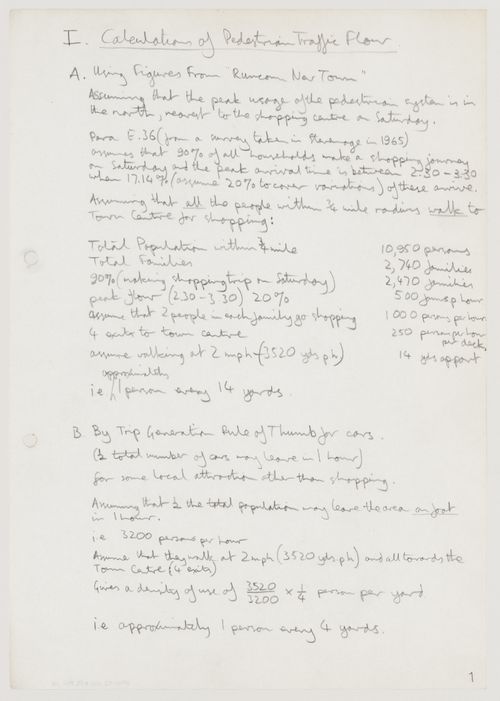 I. Calculations of Pedestrian Traffic Flow.
A. Using Figures From "Runcorn New Town"
Assuming that the peak usage of the pedestrian system is in
the north, nearest to the shopping centre on Saturday.
Para E.36 (from a survey taken in Stevenage in 1965)
assumes that 90% of all households make a shopping journey
on Saturday and the peak arrival time is between 2.30 - 3.30
when 17.14% (assume 20% to cover variations) of these arrive.
Assuming that all the people within ¾ mile radius walk to
Town Centre for shopping:
Total Population within ¾ mile 10,950 persons
Total Families 2,740 families
90% (making shopping trip on Saturday) 2,470 families
peak hour (2.30 - 3.30) 20% 500 fams p hour
assume that 2 people in each family go shopping 1000 persons per hour
4 exits to town centre 250 person per hour
per deck
assume walking at 2 mph - (3520 yds ph) 14 yds appart
approximately
i.e. / 1 person every 14 yards.
B. By Trip Generation Rule of Thumb for cars.
(½ total number of cars may leave in 1 hour)
for some local attraction other than shopping.
Assuming that ½ the total population may leave the area on foot
in 1 hour.
i.e 3200 persons per hour
Assume that they walk at 2 mph (3520 yds ph) and all towards the
Town Centre (4 exits)
Gives a density of use of 3520/3200 × ¼ person per yard
i.e approximately 1 person every 4 yards.
1